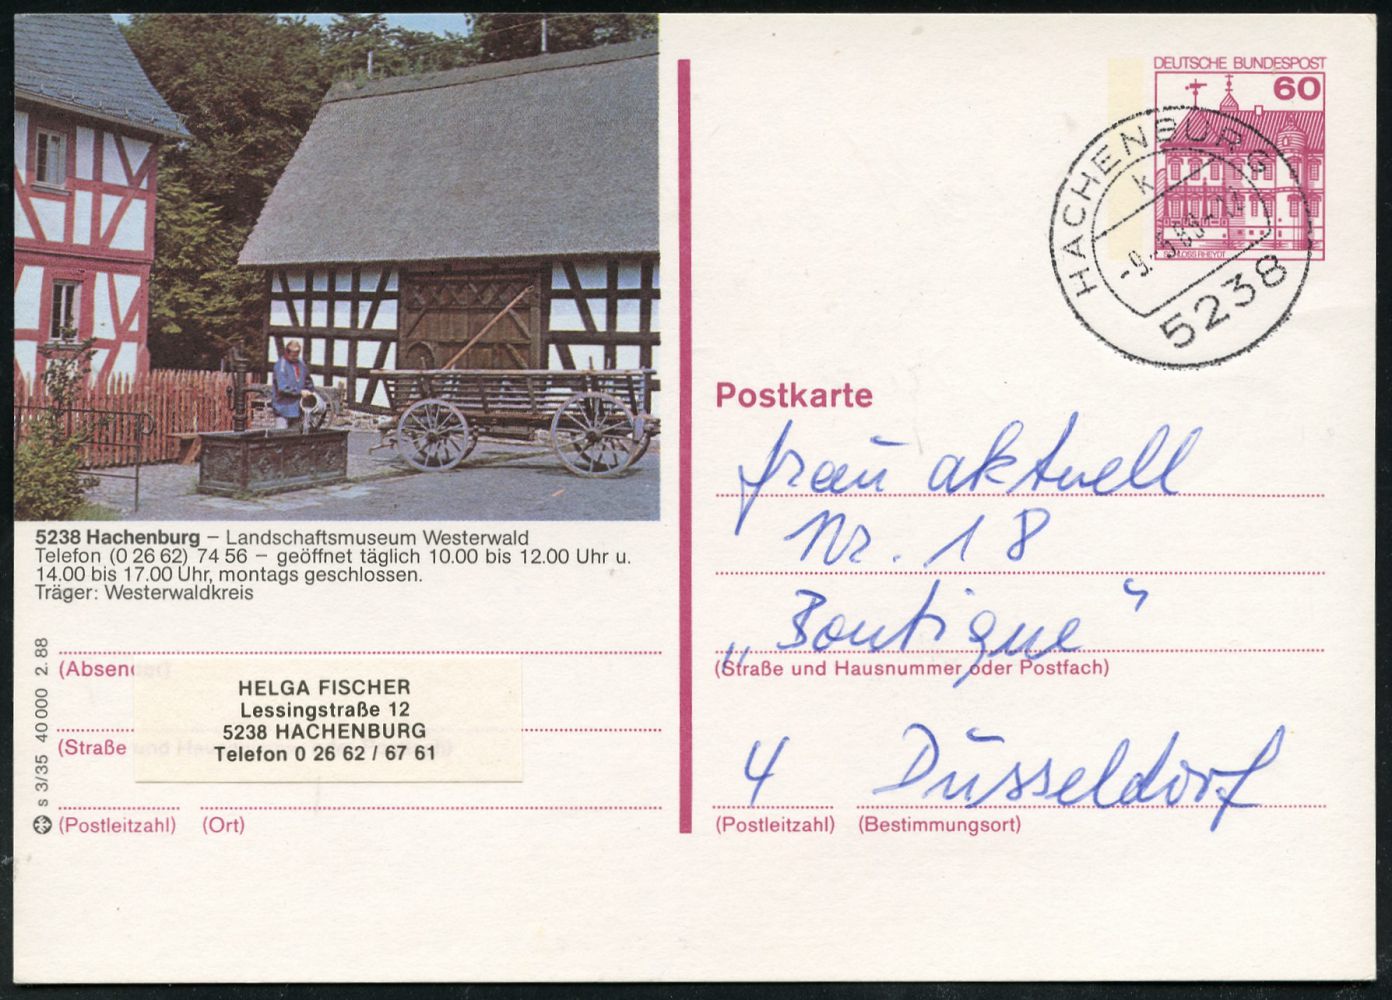 DEUTSCHE BUNDESPOST
60
SCHLOSS RHEYDT
HACHENBURG
K
5238
Postkarte
frau aktuell
Nr. 18
„Boutique“
(Straße und Hausnummer oder Postfach)
4 Düsseldorf
(Postleitzahl) (Bestimmungsort)
5238 Hachenburg – Landschaftsmuseum Westerwald
Telefon (0 26 62) 74 56 – geöffnet täglich 10.00 bis 12.00 Uhr u.
14.00 bis 17.00 Uhr, montags geschlossen.
Träger: Westerwaldkreis
(Absend
HELGA FISCHER
Lessingstraße 12
5238 HACHENBURG
Telefon 0 26 62 / 67 61
(Straße
(Postleitzahl) (Ort)
s 3/35 40 000 2.88